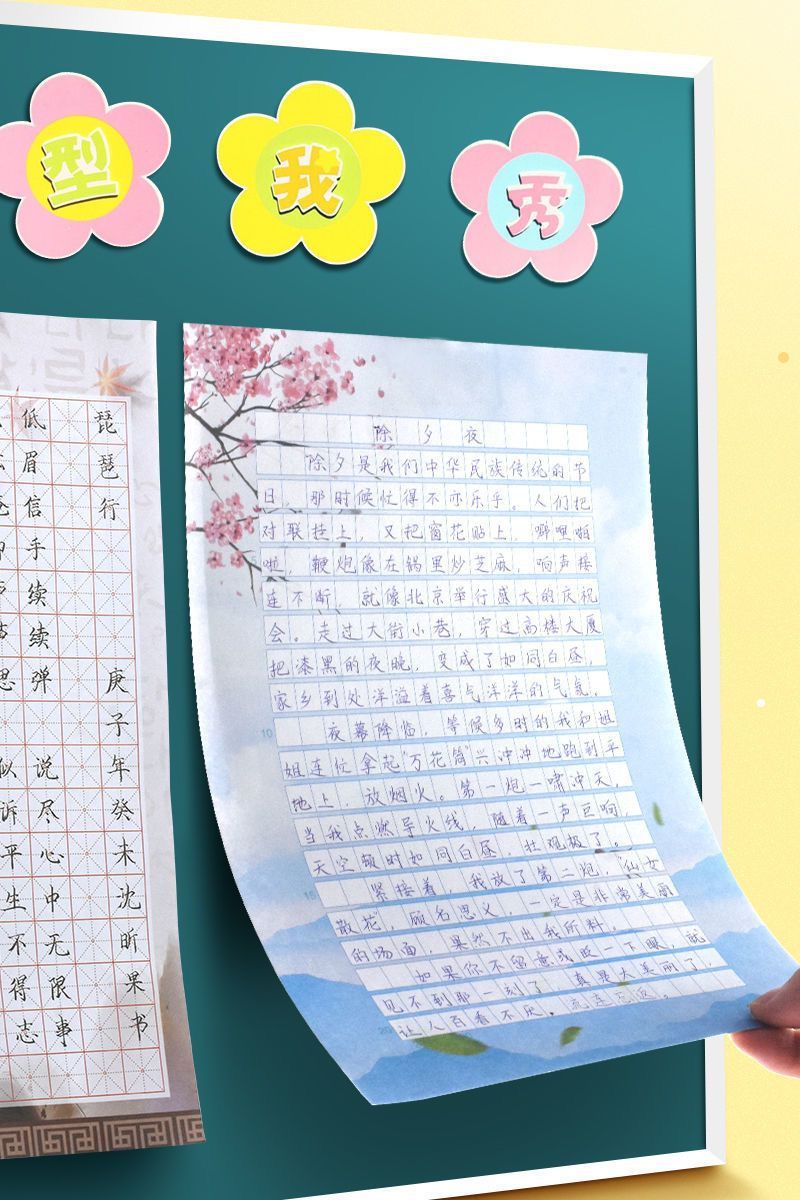 型 我 秀
除夕夜
除夕是我们中华民族传统的节
日，那时候忙得不亦乐乎。人们把
对联挂上，又把窗花贴上，噼哩啪
啦，鞭炮像在锅里炒芝麻，响声接
连不断，就像北京举行盛大的庆祝
会。走过大街小巷，穿过高楼大厦
把漆黑的夜晚，变成了如同白昼，
家乡到处洋溢着喜气洋洋的气氛。
夜幕降临，等候多时的我和姐
姐连忙拿起"万花筒"兴冲冲地跑到平
地上，放烟火。第一炮一啸冲天，
当我点燃导火线，随着一声巨响，
天空顿时如同白昼，壮观极了。
紧接着，我放了第二炮，"仙女
散花"，顾名思义，一定是非常美丽
的场面，果然不出我所料。
如果你不留意或眨一下眼，就
见不到那一刻了，真是太美丽了，
让人百看不厌，流连忘返。
10
15
20
琵琶行
庚子年癸未沈昕果书
低眉信手续续弹
说尽心中无限事